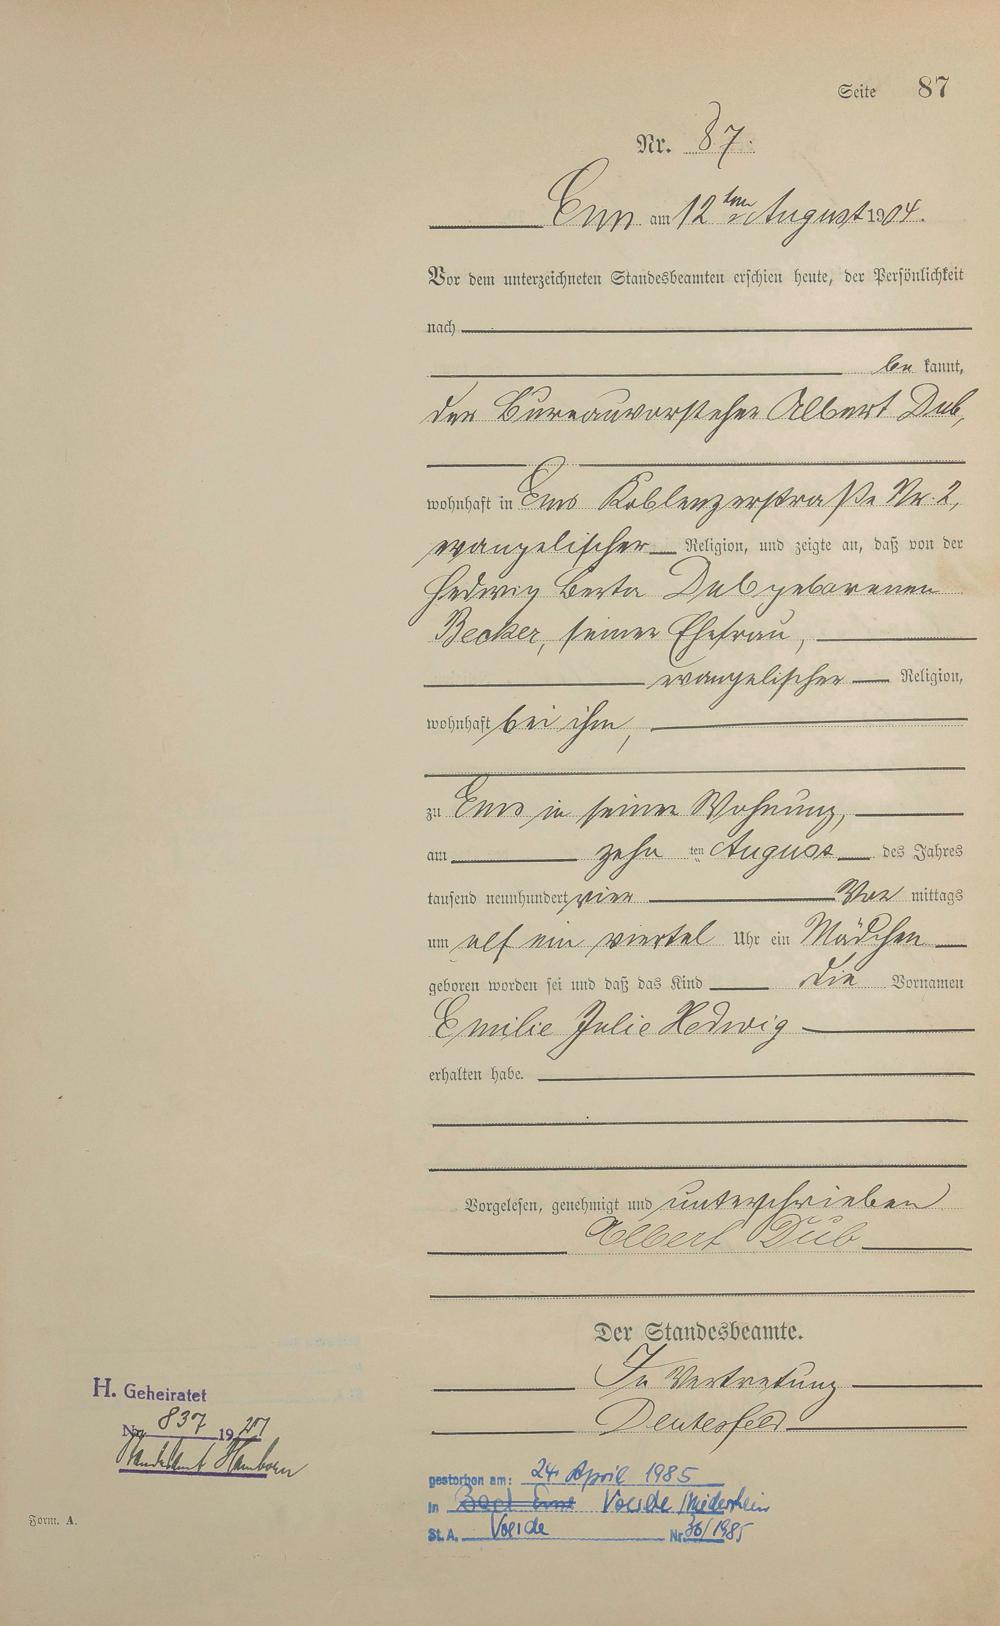 Seite 87
Nr. 87.
Ems am 12ten August 1904.
Vor dem unterzeichneten Standesbeamten erschien heute, der Persönlichkeit
nach
be kannt,
der Bureauvorsteher Albert Dub,
wohnhaft in Ems Koblenzerstraße Nr. 2,
evangelischer Religion, und zeigte an, daß von der
Hedwig Berta Dub geborenen
Becker, seiner Ehefrau,
evangelischer Religion,
wohnhaft bei ihm,
zu Ems in seiner Wohnung,
am zehn ten August des Jahres
tausend neunhundert vier Vor mittags
um elf ein viertel Uhr ein Mädchen
geboren worden sei und daß das Kind die Vornamen
Emilie Julie Hedwig
erhalten habe.
Vorgelesen, genehmigt und unterschrieben
Albert Dub
Der Standesbeamte.
In Vertretung
Deutesfeld
H. Geheiratet
Nr. 837 19
Standesamt Hamborn
gestorben am: 24. April 1985
in Bad Ems Voerde / Niederrhein
St. A. Voerde Nr. 36/1985
Form. A.